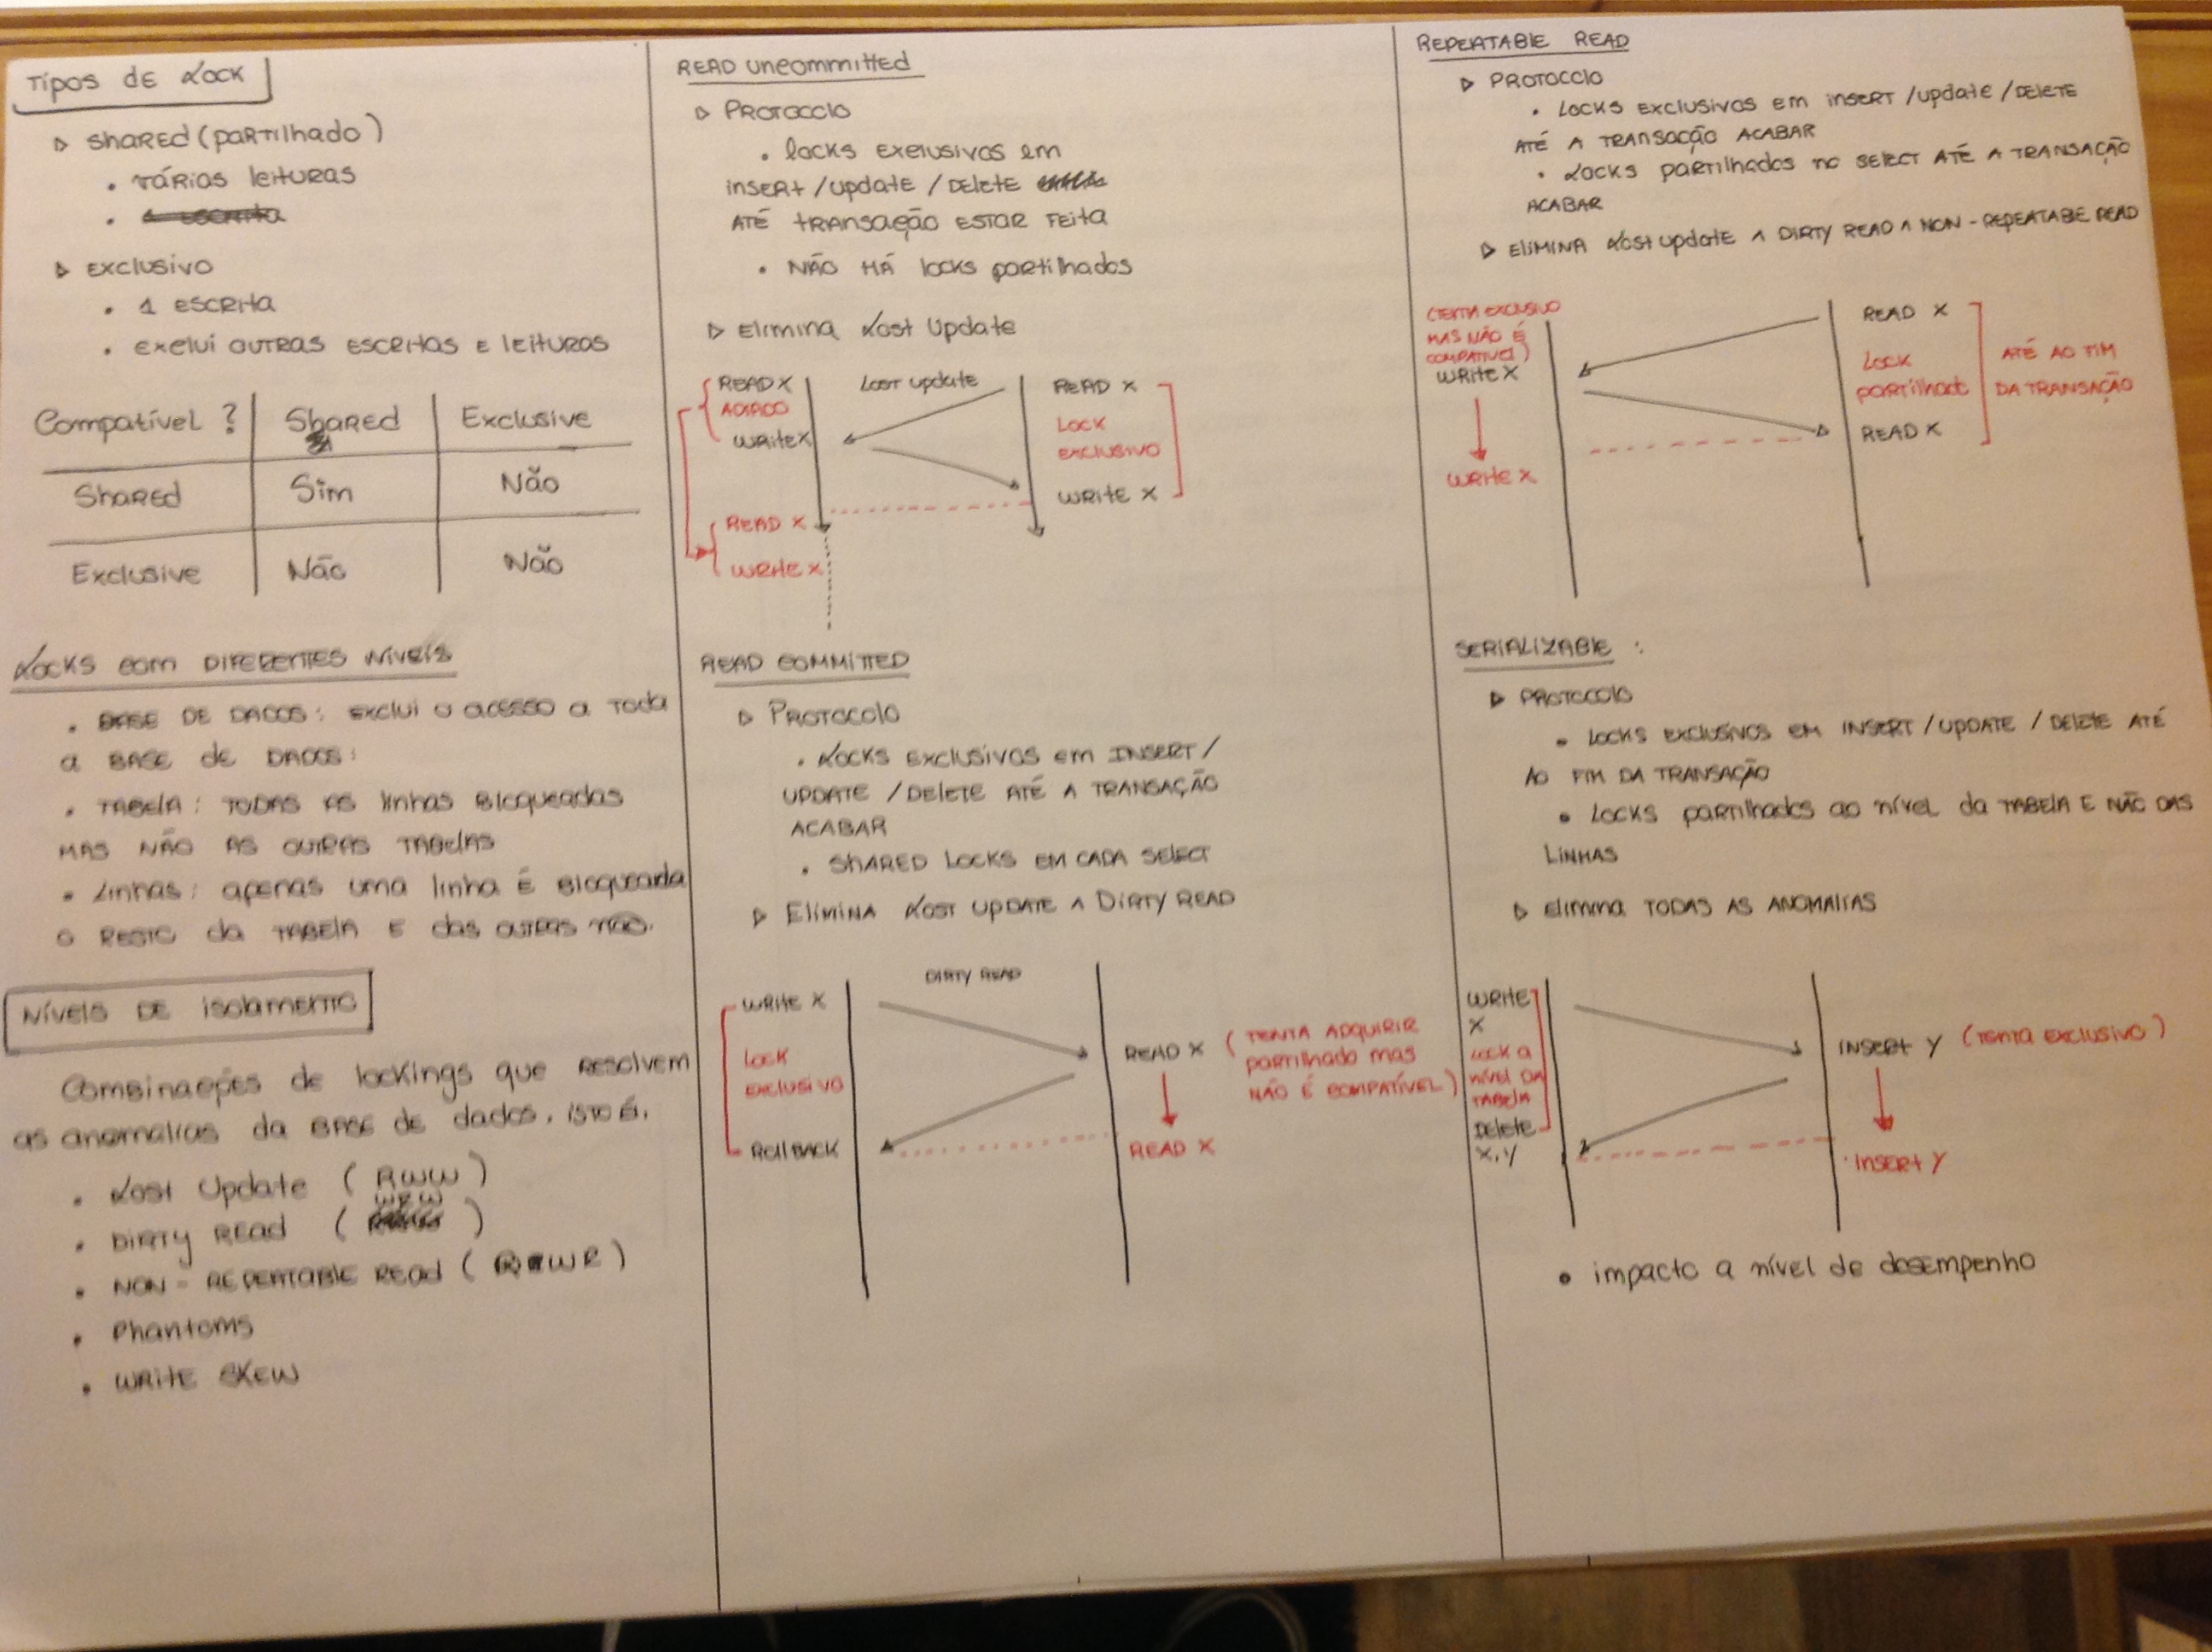 Tipos de Lock
▷ Shared (partilhado)
• várias leituras
• 1 escrita
▷ Exclusivo
• 1 escrita
• exclui outras escritas e leituras
Compatível ? Shared Exclusive
Shared Sim Não
Exclusive Não Não
Locks com diferentes níveis
• Base de dados: exclui o acesso a toda
a base de dados:
• Tabela: todas as linhas bloqueadas
mas não as outras tabelas
• Linhas: apenas uma linha é bloqueada
o resto da tabela e das outras não.
Níveis de isolamento
Combinações de lockings que resolvem
as anomalias da base de dados, isto é,
• Lost Update (RWW)
• Dirty Read (WRW)
• Non-Repeatable Read (RWR)
• Phantoms
• Write Skew
Read Uncommitted
▷ Protocolo
• locks exclusivos em
insert/update/delete
até transação estar feita
• Não há locks partilhados
▷ Elimina Lost Update
READ X Lost update READ X
ADIADO LOCK
WRITE X EXCLUSIVO
WRITE X
READ X
WRITE X
READ COMMITTED
▷ Protocolo
• Locks exclusivos em INSERT/
UPDATE/DELETE ATÉ A TRANSAÇÃO
ACABAR
• SHARED LOCKS EM CADA SELECT
▷ Elimina Lost Update ∧ Dirty Read
DIRTY READ
WRITE X
READ X (TENTA ADQUIRIR
partilhado mas
NÃO É COMPATÍVEL)
LOCK
EXCLUSIVO
ROLLBACK READ X
REPEATABLE READ
▷ PROTOCOLO
• Locks exclusivos em insert/update/DELETE
ATÉ A TRANSAÇÃO ACABAR
• Locks partilhados no SELECT ATÉ A TRANSAÇÃO
ACABAR
▷ ELIMINA Lost update ∧ DIRTY READ ∧ NON-REPEATABLE READ
(TENTA EXCLUSIVO
MAS NÃO É
COMPATÍVEL)
WRITE X
READ X
Lock
partilhado
ATÉ AO FIM
DA TRANSAÇÃO
READ X
WRITE X
SERIALIZABLE:
▷ PROTOCOLO
• Locks exclusivos em INSERT/UPDATE/DELETE ATÉ
AO FIM DA TRANSAÇÃO
• Locks partilhados ao nível da TABELA E NÃO DAS
LINHAS
▷ Elimina TODAS AS ANOMALIAS
WRITE
X
LOCK A
NÍVEL DA
TABELA
DELETE
X,Y
INSERT Y (TENTA EXCLUSIVO)
INSERT Y
• impacto a nível de desempenho